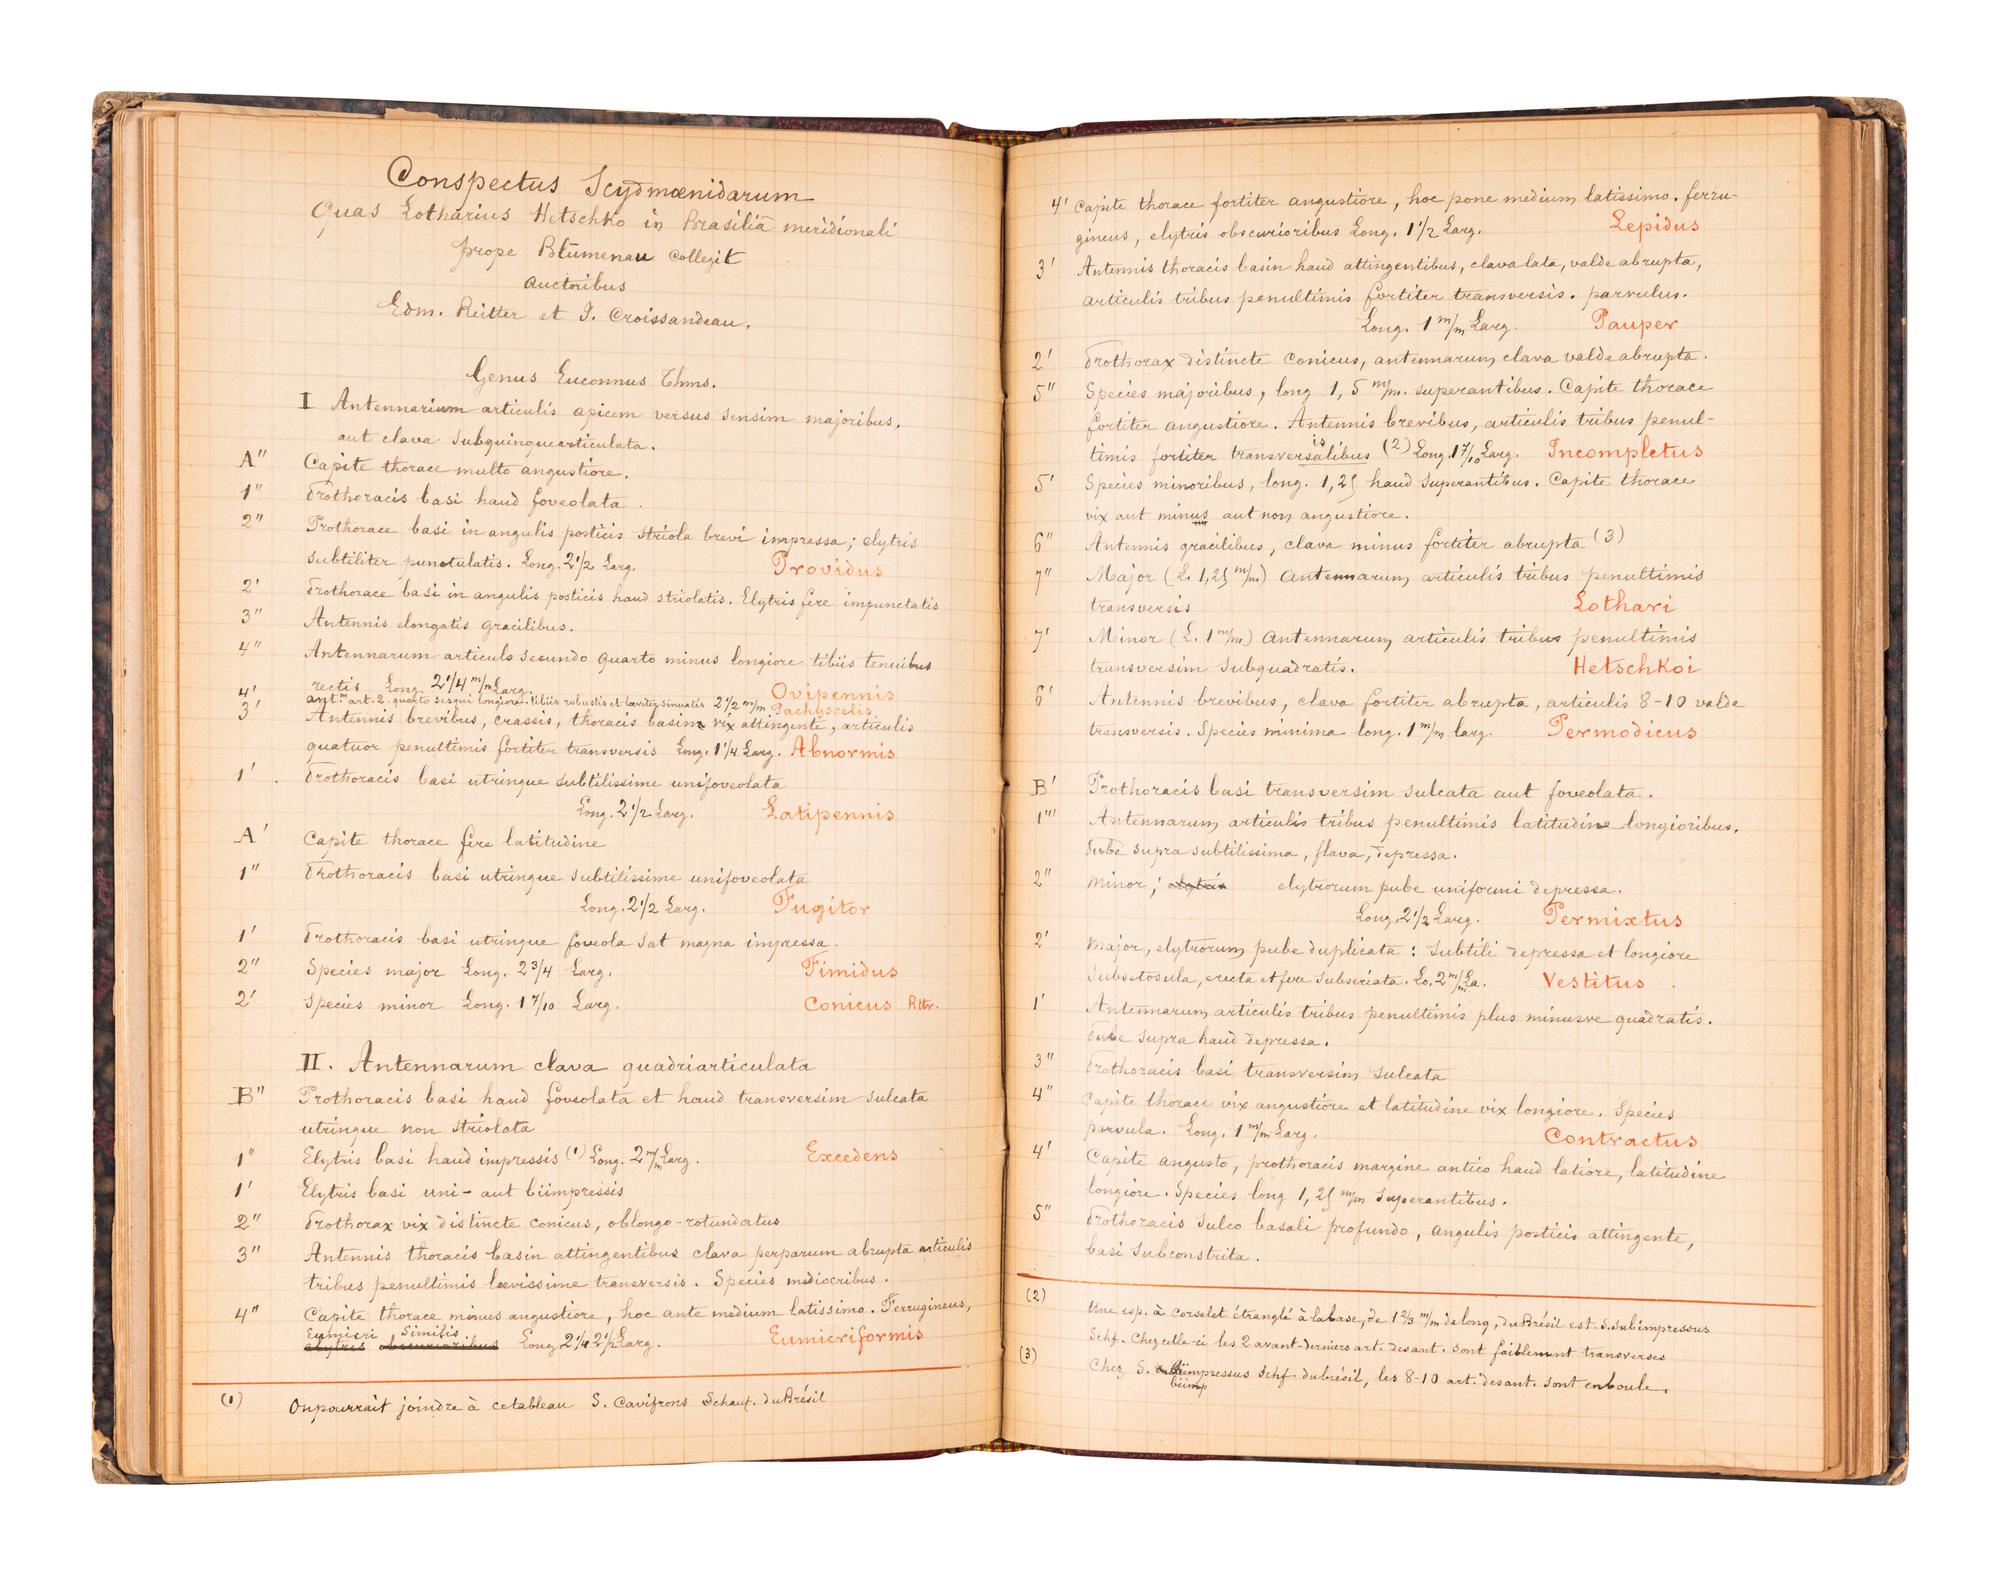 Conspectus Scydmænidarum
Quas Lotharius Hetschko in Brasiliâ meridionali
prope Blumenau collegit
auctoribus
Edm. Reitter et J. Croissandeau.
Genus Euconnus Thms.
I Antennarium articulis apicem versus sensim majoribus,
aut clava subquinquearticulata.
A" Capite thorace multo angustiore.
1" Prothoracis basi haud foveolata.
2" Prothorace basi in angulis posticis striola brevi impressa; elytris
subtiliter punctulatis. Long. 2 1/2 Larg. Providus
2' Prothorace basi in angulis posticis haud striolatis. Elytris fere impunctatis
3" Antennis elongatis gracilibus.
4" Antennarum articulo secundo quarto minus longiore tibiis tenuibus
rectis Long. 2 1/4 m/m Larg. Ovipennis
4' antm art. 2. quarto sesqui longiore. tibiis robustis et læviter sinuatis 2 1/2 m/m Pachyscelis
3' Antennis brevibus, crassis, thoracis basim vix attingente, articulis
quatuor penultimis fortiter transversis Long. 1 1/4. Larg. Abnormis
1' Prothoracis basi utringue subtilissime unifoveolata
Long. 2 1/2 Larg. Latipennis
A' Capite thorace fere latitudine
1" Prothoracis basi utringue subtilissime unifoveolata
Long. 2 1/2 Larg. Fugitor
1' Prothoracis basi utringue foveola sat magna impressa.
2" Species major Long. 2 3/4 Larg. Timidus
2' Species minor Long. 1 7/10 Larg. Conicus Rttr.
II. Antennarum clava quadriarticulata
B" Prothoracis basi haud foveolata et haud transversim sulcata
utringue non striolata
1" Elytris basi haud impressis (1) Long. 2 m/m Larg. Excedens
1' Elytris basi uni- aut biimpressis
2" Prothorax vix distincte conicus, oblongo-rotundatus
3" Antennis thoracis basin attingentibus clava perparum abrupta articulis
tribus penultimis lœvissime transversis. Species mediocribus.
4" Capite thorace minus angustiore, hoc ante medium latissimo. Ferrugineus,
Eumicri Similis
elytris obscurioribus Long 2 1/4 2 1/2 Larg. Eumicriformis
(1) On pourrait joindre à ce tableau S. Cavifrons Schauf. du Brésil
4' Capite thorace fortiter angustiore, hoc pone medium latissimo. ferru-
gineus, elytris obscurioribus Long. 1 1/2 Larg. Lepidus
3' Antennis thoracis basin haud attingentibus, clava lata, valde abrupta,
articulis tribus penultimis fortiter transversis. parvulus.
Long. 1 m/m Larg. Pauper
2' Prothorax distincte conicus, antennarum clava valde abrupta.
5" Species majoribus, long 1,5 m/m. superantibus. Capite thorace
fortiter angustiore. Antennis brevibus, articulis tribus penul-
is
timis fortiter transversalibus (2) Long. 1 7/10 Larg. Incompletus
5' Species minoribus, long. 1,25 haud superantibus. Capite thorace
vix aut minus aut non angustiore.
6" Antennis gracilibus, clava minus fortiter abrupta (3)
7" Major (L. 1,25 m/m.) Antennarum articulis tribus penultimis
transversis Lothari
7' Minor (L. 1 m/m.) Antennarum articulis tribus penultimis
transversim subquadratis. Hetschkoi
6' Antennis brevibus, clava fortiter abrupta, articulis 8-10 valde
transversis. Species minima long. 1 m/m larg. Permodicus
B' Prothoracis basi transversim sulcata aut foveolata.
1" Antennarum articulis tribus penultimis latitudine longioribus.
Pube supra subtilissima, flava, depressa.
2" Minor; elytris elytrorum pube uniformi depressa.
Long. 2 1/2 Larg. Permixtus
2' Major, elytrorum pube duplicata: subtili depressa et longiore
subsetosula, erecta et fere subseriata. Lo. 2 m/m La. Vestitus.
1' Antennarum articulis tribus penultimis plus minusve quadratis.
Pube supra haud depressa.
3" Prothoracis basi transversim sulcata
4" Capite thorace vix angustiore et latitudine vix longiore. Species
parvula. Long. 1 m/m Larg. Contractus
4' Capite angusto, prothoracis margine antico haud latiore, latitudine
longiore. Species long 1,25 m/m superantibus.
5" Prothoracis sulco basali profundo, angulis posticis attingente,
basi subconstrita.
(2) Une esp. à corselet étranglé à la base, de 1 2/3 m/m de long, du Brésil est S. subimpressus
Schf. Chez celle-ci les 2 avant-derniers art. des ant. sont faiblement transverses
(3) Chez S. impressus Schf. du brésil, les 8-10 art. des ant. sont en boule.
biimp